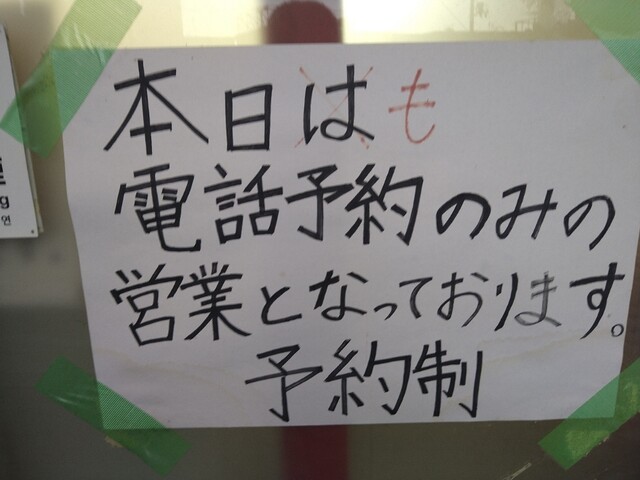 本日はも
電話予約のみの
営業となっております。
予約制
g
연